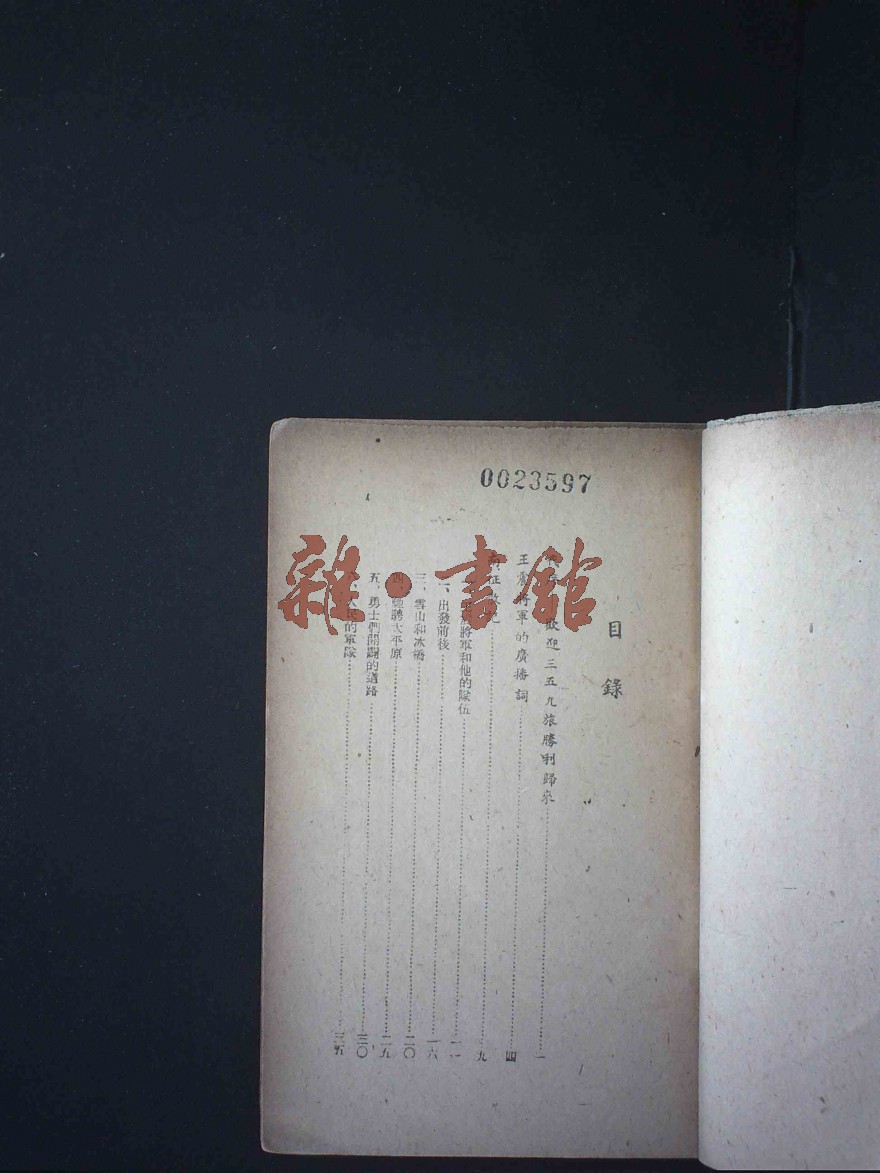 0023597
目錄
歡迎三五九旅勝利歸來……一
王震將軍的廣播詞……四
南征散記……九
將軍和他的隊伍……一一
二、出發前後……一六
三、雪山和冰橋……二〇
四、馳騁太平原……二五
五、勇士們開闢的道路……三〇
六、人民的軍隊……三五
雜·書館